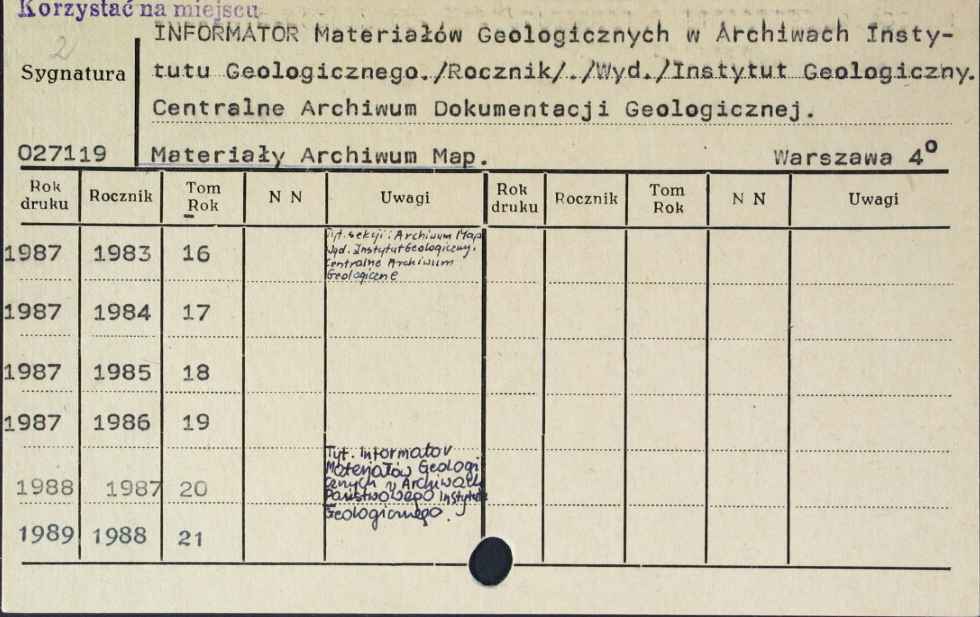 Korzystać na miejscu
2
INFORMATOR Materiałów Geologicznych w Archiwach Insty-
Sygnatura
tutu Geologicznego./Rocznik/./Wyd./Instytut Geologiczny.
Centralne Archiwum Dokumentacji Geologicznej.
027119 Materiały Archiwum Map. Warszawa 4°
Rok druku Rocznik Tom Rok N N Uwagi Rok druku Rocznik Tom Rok N N Uwagi
1987 1983 16
Tyt. sekcji: Archiwum Map
Wyd. Instytut Geologiczny.
Centralne Archiwum
Geologiczne
1987 1984 17
1987 1985 18
1987 1986 19
Tyt. Informator
Materiałów Geologi
cznych w Archiwach
Państwowego Instytutu
Geologicznego.
1988 1987 20
1989 1988 21